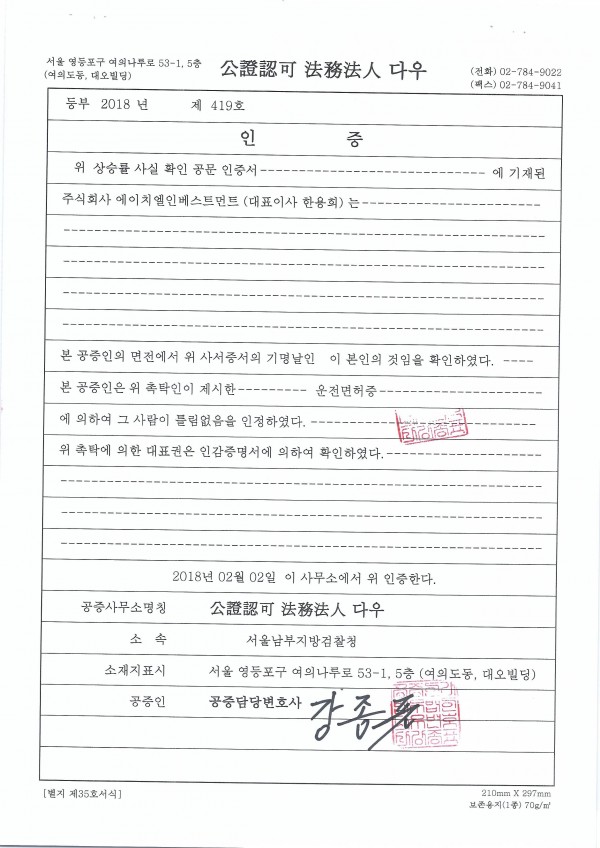 서울 영등포구 여의나루로 53-1, 5층
(여의도동, 대오빌딩)
公證認可 法務法人 다우
(전화) 02-784-9022
(팩스) 02-784-9041
등부 2018 년 제 419호
인 증
위 상승률 사실 확인 공문 인증서------------------------------ 에 기재된
주식회사 에이치엘인베스트먼트 (대표이사 한용희) 는------------------------
본 공증인의 면전에서 위 사서증서의 기명날인 이 본인의 것임을 확인하였다. ----
본 공증인은 위 촉탁인이 제시한--------- 운전면허증----------------------
에 의하여 그 사람이 틀림없음을 인정하였다. ------------------------------
위 촉탁에 의한 대표권은 인감증명서에 의하여 확인하였다.---------------------
2018년 02월 02일 이 사무소에서 위 인증한다.
공증사무소명칭 公證認可 法務法人 다우
소 속 서울남부지방검찰청
소재지표시 서울 영등포구 여의나루로 53-1, 5층 (여의도동, 대오빌딩)
공증인 공증담당변호사 강종표
[별지 제35호서식]
210mm X 297mm
보존용지(1종) 70g/㎡